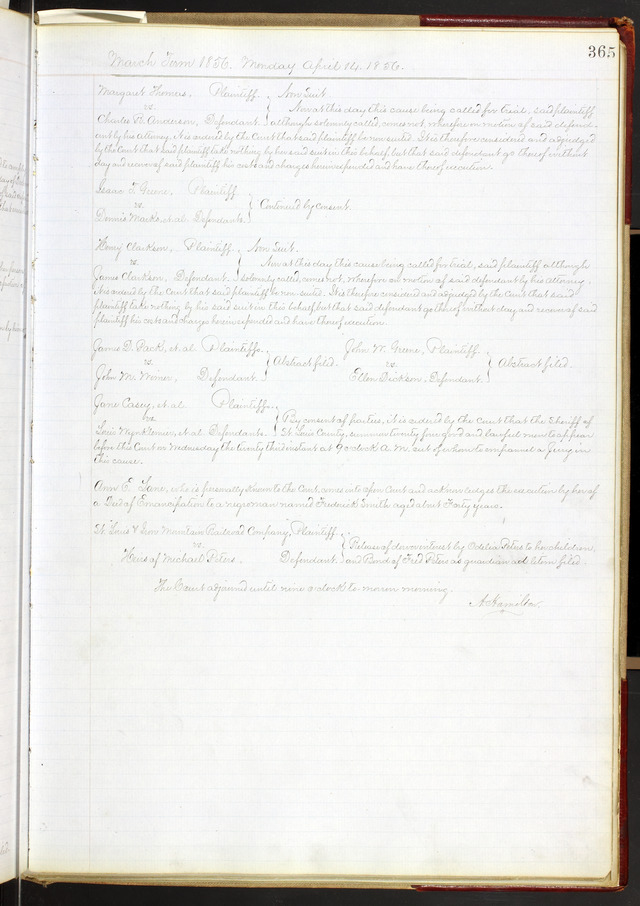 365
March Term 1856. Monday April 14. 1856.
Margaret Thomas, Plaintiff. } Non Suit.
vs. Now at this day this cause being called for trial, said plaintiff
Charles R. Anderson, Defendant. although solemnly called, comes not, wherefore on motion of said defend-
ant by his attorney, it is ordered by the Court that said plaintiff be nonsuited. It is therefore considered and adjudged
by the Court that said plaintiff take nothing by her said suit in this behalf but that said defendant go thereof without
day and recover of said plaintiff his costs and charges herein expended and have thereof execution.
Isaac T. Greene, Plaintiff
vs. } Continued by consent.
Dennis Marks, et al. Defendants.
Henry Clarkson, Plaintiff } Non Suit.
vs. Now at this day this cause being called for trial, said plaintiff although
James Clarkson, Defendant. solemnly called, comes not, wherefore on motion of said defendant by his attorney,
it is ordered by the Court that said plaintiff be nonsuited. It is therefore considered and adjudged by the Court that said
plaintiff take nothing by his said suit in this behalf but that said defendant go thereof without day and recover of said
plaintiff his costs and charges herein expended and have thereof execution.
James D. Park, et al. Plaintiffs. John W. Greene, Plaintiff
vs. } Abstract filed. vs. } Abstract filed.
John M. Wimer, Defendant. Ellen Dickson, Defendant.
Jane Casey, et al. Plaintiffs.
vs. } By consent of parties, it is ordered by the Court that the Sheriff of
Louis et al. Defendants. St. Louis County, summon twenty four good and lawful men to appear
before this Court on Wednesday the twenty third instant at 9 o'clock A. M. out of whom to empannel a Jury in
this cause.
Ann E. Lane, who is personally known to the Court, comes into open Court and acknowledges the execution by her of
a Deed of Emancipation to a negro man named Frederick Smith aged about Forty years.
St. Louis & Iron Mountain Railroad Company, Plaintiff
vs. } Release of dower interest by Odelia Peters to her children,
Heirs of Michael Peters. Defendant. and Bond of Fred Peters as guardian ad litem filed.
The Court adjourned until nine o'clock to morrow morning.
A. Hamilton.